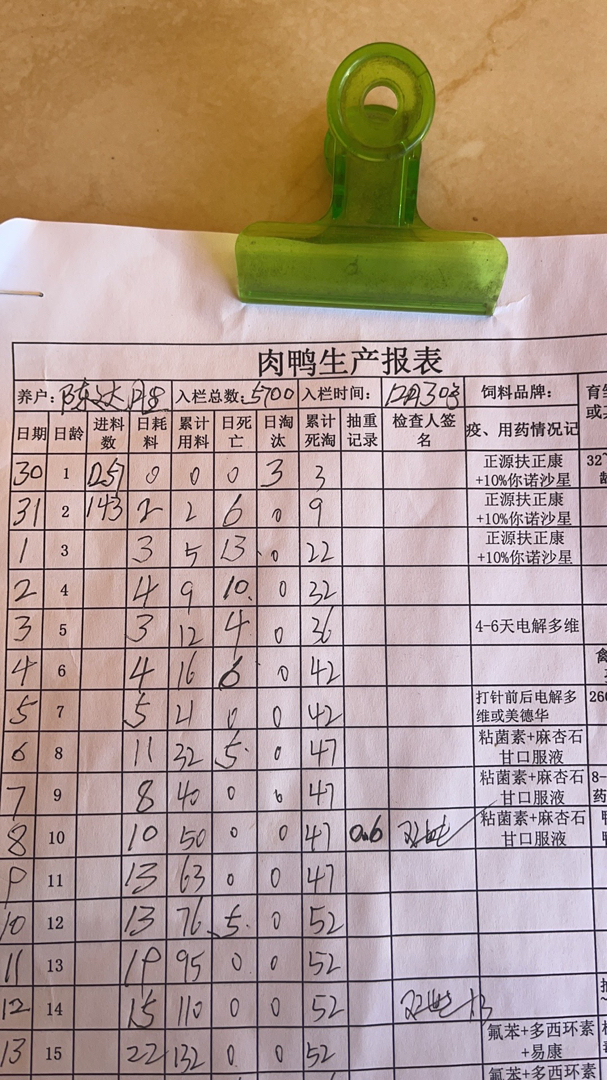 肉鸭生产报表
养户: 陈达 入栏总数: 5700 入栏时间: 12月30号 饲料品牌: 育
日期 日龄 进料数 日耗料 累计用料 日死亡 日淘汰 累计死淘 抽重记录 检查人签名 疫、用药情况记 或
30 1 0 0 0 3 3 正源扶正康+10%你诺沙星 32~
31 2 143 2 2 6 0 9 正源扶正康+10%你诺沙星
1 3 3 5 13 0 22 正源扶正康+10%你诺沙星
2 4 4 9 10 0 32
3 5 3 12 4 0 36 4-6天电解多维
4 6 4 16 6 0 42 禽
5 7 5 21 0 0 42 打针前后电解多维或美德华 260
6 8 11 32 5 0 47 粘菌素+麻杏石甘口服液
7 9 8 40 0 0 47 粘菌素+麻杏石甘口服液 8- 药
8 10 10 50 0 0 47 0.6 粘菌素+麻杏石甘口服液 鸭
9 11 13 63 0 0 47
10 12 13 76 5 0 52
11 13 19 95 0 0 52
12 14 15 110 0 0 52
13 15 22 132 0 0 52 氟苯+多西环素+易康
氟苯+多西环素